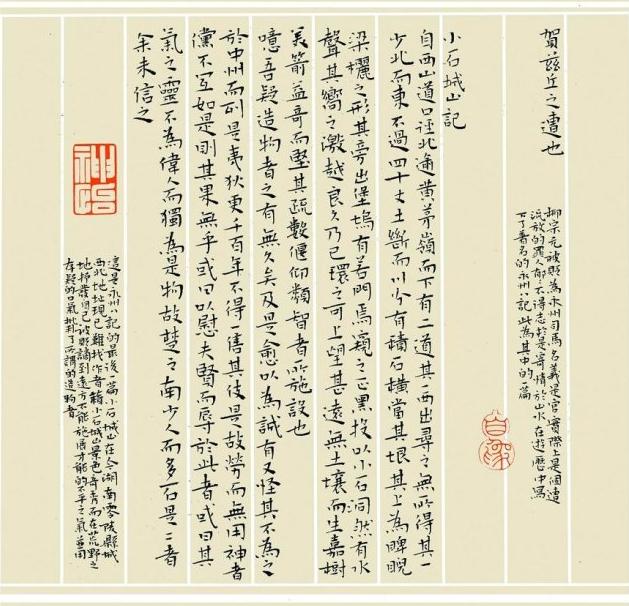 賀茲丘之遭也
柳宗元被貶為永州司馬名義是官實際上是個遭
流放的罪人郁郁不得志於是寄情於山水在遊歷中寫
下了著名的永州八記此為其中的一篇
小石城山記
自西山道口徑北逾黃茅嶺而下有二道其一西出尋之無所得其一
少北而東不過四十丈土斷而川分有積石橫當其垠其上為睥睨
梁欐之形其旁出堡塢有若門焉窺之正黑投以小石洞然有水
聲其嚮之激越良久乃已環之可上望甚遠無土壤而生嘉樹
美箭益奇而堅其疏數偃仰類智者所施設也
噫吾疑造物者之有無久矣及是愈以為誠有又怪其不為之
於中州而列是夷狄更千百年不得一售其伎是故勞而無用神者
儻不宜如是則其果無乎或曰以慰夫賢而辱於此者或曰其
氣之靈不為偉人而獨為是物故楚之南少人而多石是二者
余未信之
神怡
這是永州八記的最後一篇小石城山在今湖南零陵縣城
西北地址現已難找作者籍小石城山景色奇秀而在荒野之
地抒發自己被貶謫到遠方不能施展才能的不平之氣並用
存疑的口氣批判了所謂的造物者